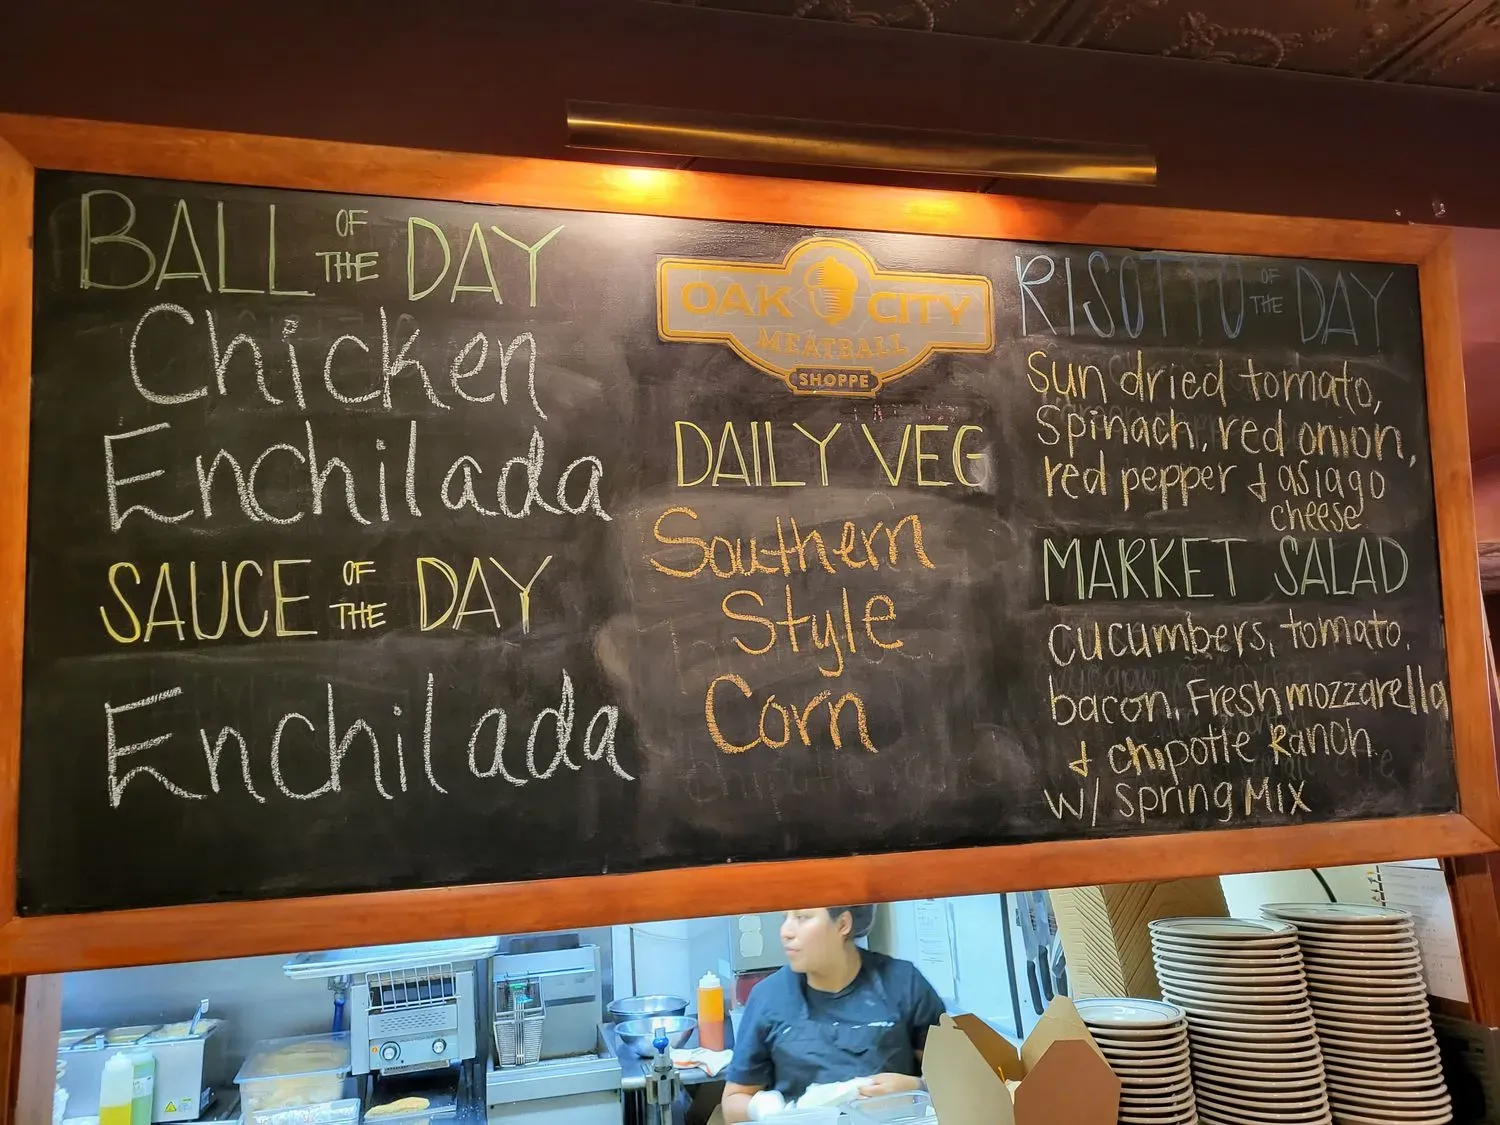 BALL OF THE DAY
Chicken
Enchilada
SAUCE OF THE DAY
Enchilada
OAK CITY
MEATBALL
SHOPPE
DAILY VEG
Southern
Style
Corn
RISOTTO OF THE DAY
Sun dried tomato,
Spinach, red onion,
red pepper & asiago
cheese
MARKET SALAD
cucumbers, tomato,
bacon, Fresh mozzarella
& chipotle Ranch
w/ spring Mix